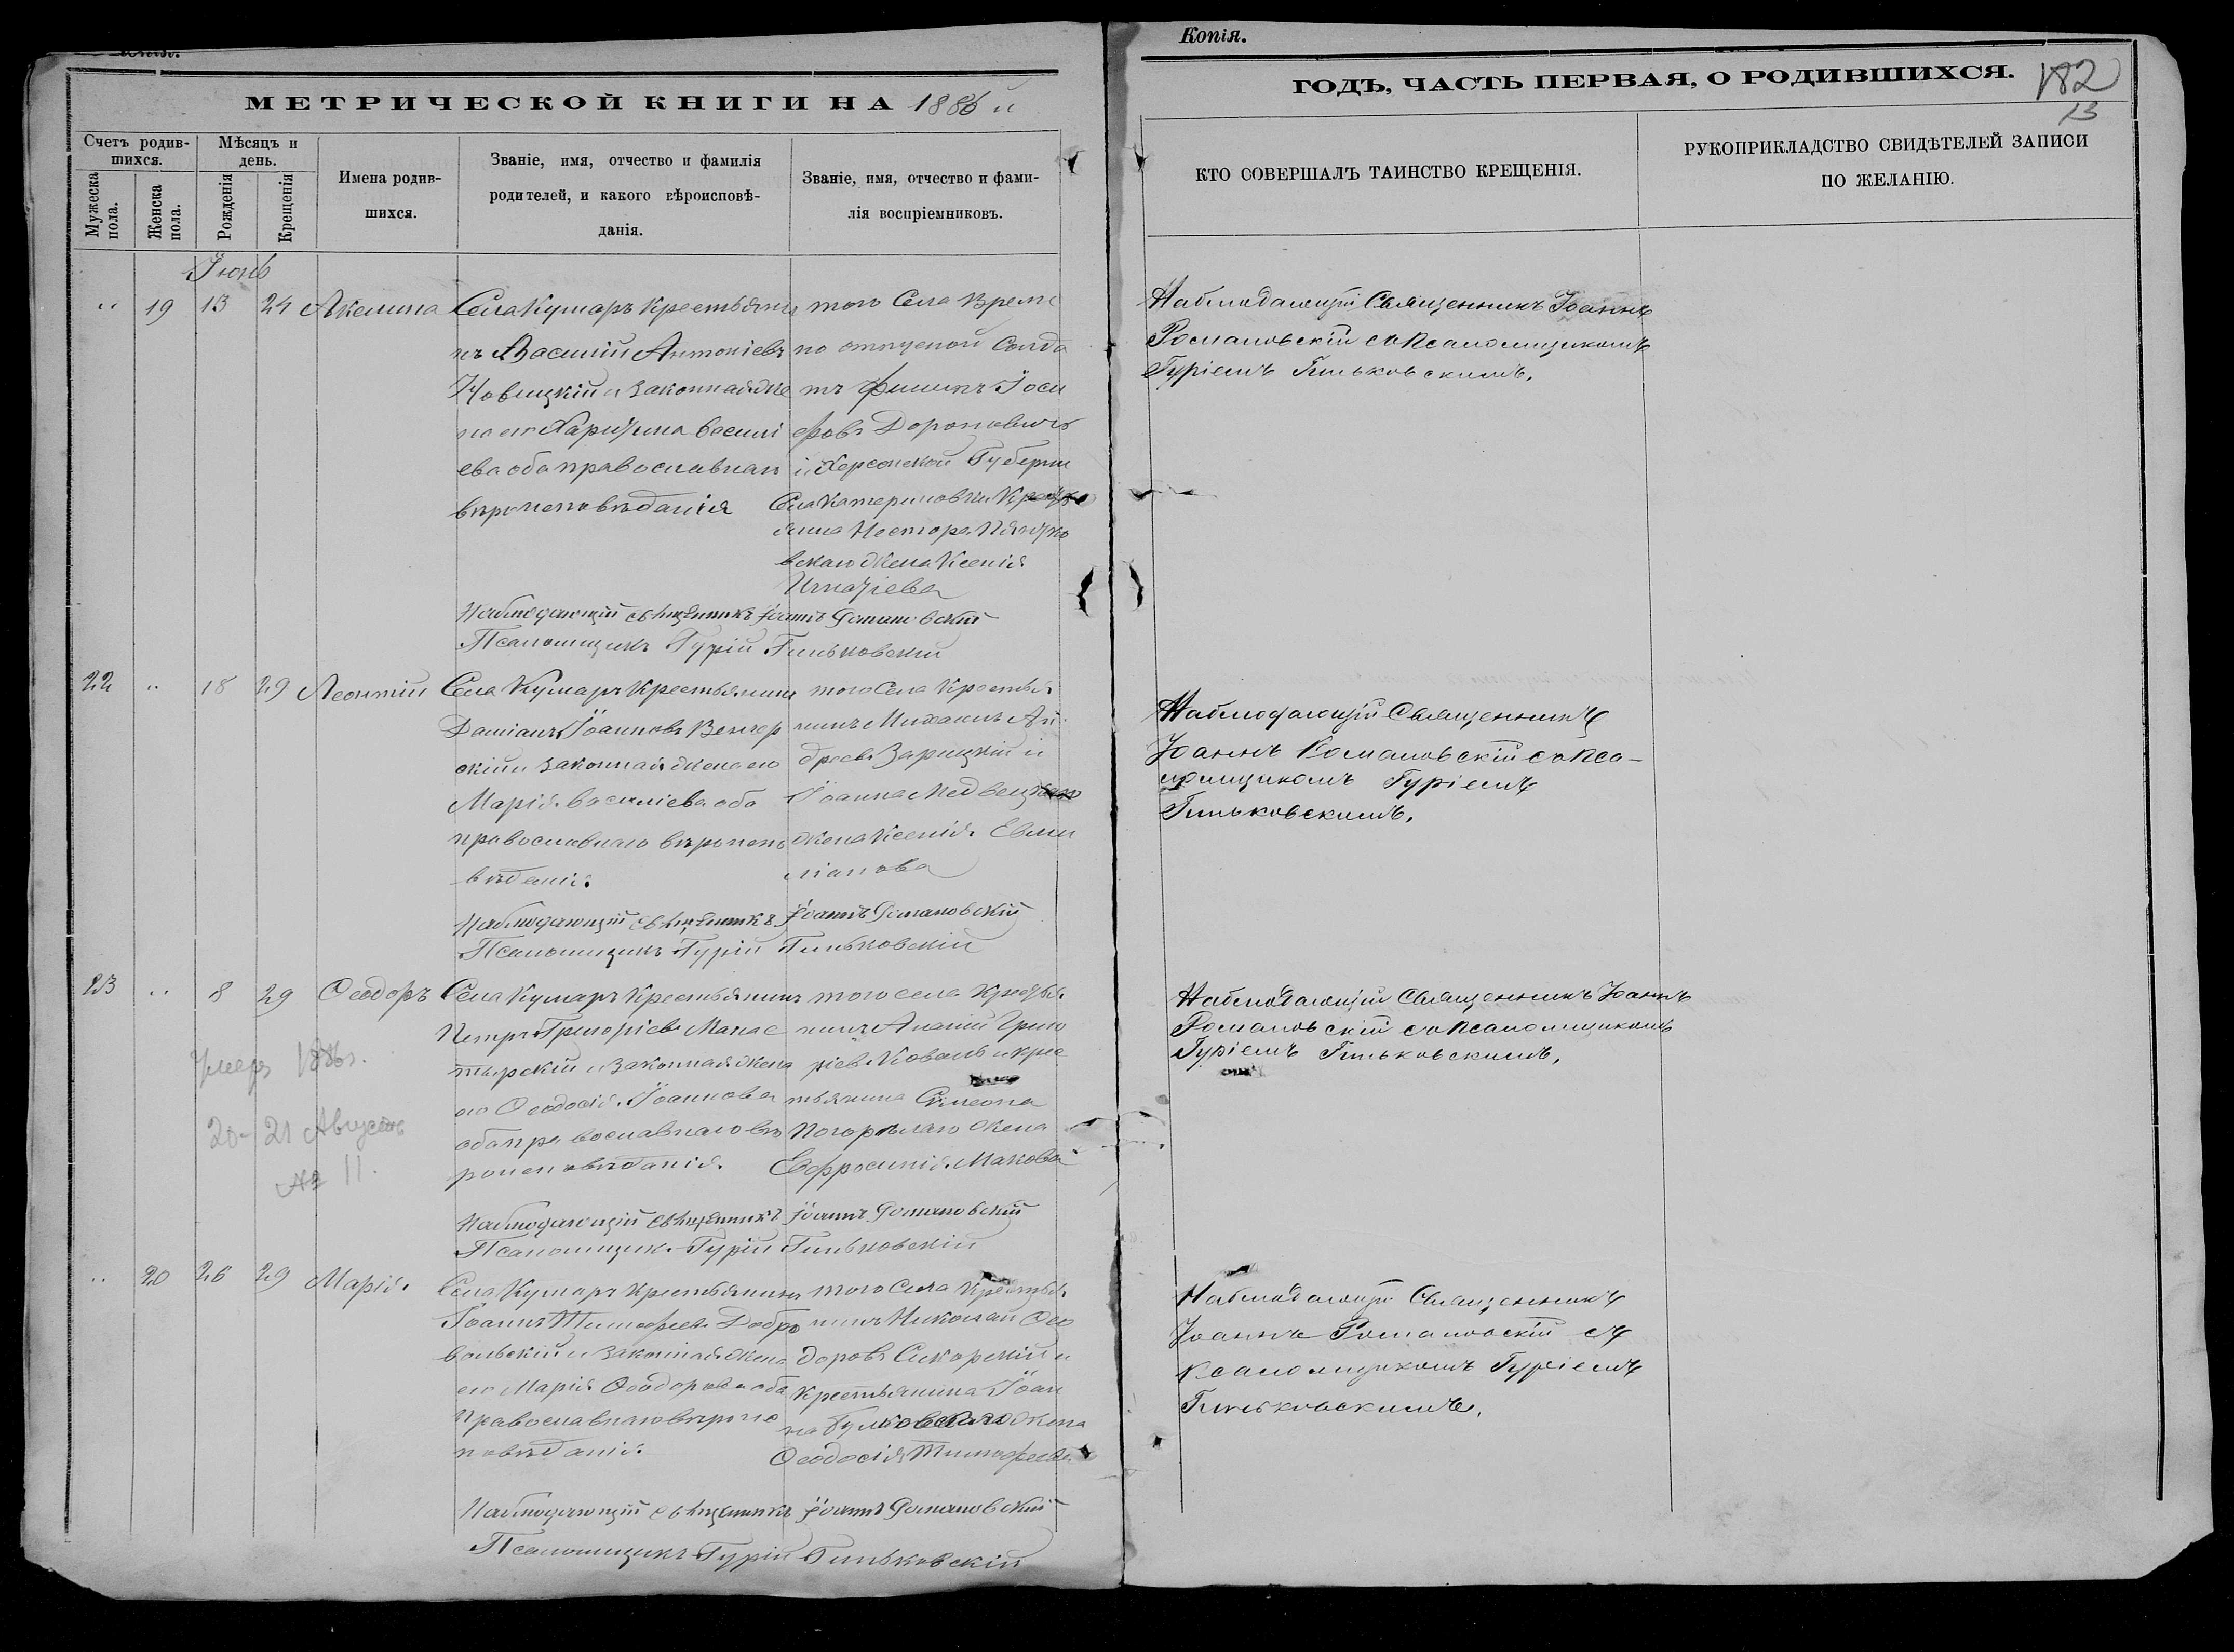 Копія.
МЕТРИЧЕСКОЙ КНИГИ НА 1886 й
ГОДЪ, ЧАСТЬ ПЕРВАЯ, О РОДИВШИХСЯ.
182
13
Счетъ родив-
шихся.
Мужеска
пола.
Женска
пола.
Мѣсяцъ и
день.
Рожденія
Крещенія
Имена родив-
шихся.
Званіе, имя, отчество и фамилія
родителей, и какого вѣроисповѣ-
данія.
Званіе, имя, отчество и фами-
лія воспріемниковъ.
КТО СОВЕРШАЛЪ ТАИНСТВО КРЕЩЕНІЯ.
РУКОПРИКЛАДСТВО СВИДѢТЕЛЕЙ ЗАПИСИ
ПО ЖЕЛАНІЮ.
Іюнь
" 19 13 24 Акелина
Села Кушаръ Крестьяни
нъ Василій Антоніевъ
Новицкій и законная же
на его Харитина Васили
ева оба православнаго
вѣроисповѣданія
того Села Време
но отпускной Солда
тъ Филипъ Іоси
фовъ Дороповичъ
и Херсонской Губерни
Села Катериновки Крестья
янина Нестора
вскаго жена Ксенія
Игнатіева
Наблюдающій священникъ Іоаннъ Романовскій
Псаломщикъ Гурій Гиньковскій
Наблюдающій Священникъ Іоаннъ
Романовскій съ псаломщикомъ
Гуріемъ Гиньковскимъ.
22 " 18 29 Леонтій
Села Кушаръ Крестьянинъ
Даміанъ Іоанновъ Венгер
скій и законная жена его
Марія Василіева оба
православнаго вѣроиспо
вѣданія.
того Села Крестья
нинъ Михаилъ Ан
дреевъ Зарицкій и
Іоанна Медвецкаго
жена Ксенія Евми
ліанова
Наблюдающій священникъ Іоаннъ Романовскій
Псаломщикъ Гурій Гиньковскій
Наблюдающій Священникъ
Іоаннъ Романовскій съ пса-
ломщикомъ Гуріемъ
Гиньковскимъ.
23 " 8 29 Ѳеодоръ
Села Кушаръ Крестьянинъ
Петръ Григоріевъ Манас
тырскій и законная жена
его Ѳеодосія Іоаннова
оба православнаго вѣ
роисповѣданія.
того села Крестья
нинъ Ананій Григо
ріевъ Коваль и крес
тьянина Симеона
Погорѣлаго жена
Евфросинія Макова
Умеръ 1886 г.
20-21 Августъ
№ 11.
Наблюдающій священникъ Іоаннъ Романовскій
Псаломщикъ Гурій Гиньковскій
Наблюдающій Священникъ Іоаннъ
Романовскій съ псаломщикомъ
Гуріемъ Гиньковскимъ.
" 20 26 29 Марія
Села Кушаръ Крестьянинъ
Іоаннъ Тимофеевъ Добро
вольскій и законная жена
его Марія Ѳеодорова оба
Православнаго вѣроис
повѣданія.
того Села Крестья
нинъ Николай Ѳео
доровъ Сикорскій и
Крестьянина Іоан
на жена
Ѳеодосія Тимофеева
Наблюдающій священникъ Іоаннъ Романовскій
Псаломщикъ Гурій Гиньковскій
Наблюдающій Священникъ
Іоаннъ Романовскій съ
псаломщикомъ Гуріемъ
Гиньковскимъ.